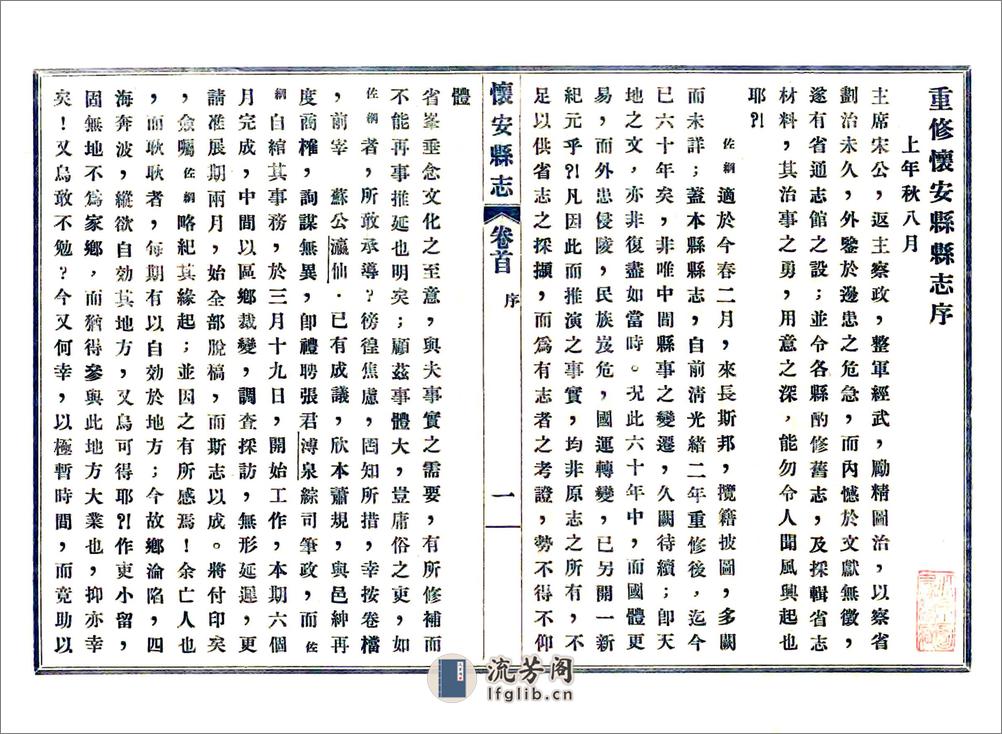 重修懷安縣縣志序
上年秋八月
主席宋公，返主察政，整軍經武，勵精圖治，以察省
劃治未久，外鑒於邊患之危急，而內憾於文獻無徵，
遂有省通志館之設；並令各縣酌修舊志，及採輯省志
材料，其治事之勇，用意之深，能勿令人聞風興起也
耶？！
佐綱適於今春二月，來長斯邦，攬籍披圖，多闕
而未詳；蓋本縣縣志，自前清光緒二年重修後，迄今
已六十年矣，非唯中間縣事之變遷，久闕待續；卽天
地之文，亦非復盡如當時。况此六十年中，而國體更
易，而外患侵陵，民族岌危，國運轉變，已另開一新
紀元乎？！凡因此而推演之事實，均非原志之所有，不
足以供省志之採擷，而爲有志者之考證，勢不得不仰
懷安縣志 卷首 序 一
體
省峯垂念文化之至意，與夫事實之需要，有所修補而
不能再事推延也明矣；顧茲事體大，豈庸俗之吏，如
佐綱者，所敢承導？徬徨焦慮，罔知所措，幸按卷檔
，前宰　蘇公瀛仙．已有成議，欣本蕭規，與邑紳再
度商榷，詢謀無異，卽禮聘張君溥泉綜司筆政，而佐
綱自綰其事務，於三月十九日，開始工作，本期六個
月完成，中間以區鄉裁變，調查採訪，無形延遲，更
請准展期兩月，始全部脫稿，而斯志以成。將付印矣
，僉囑佐綱略紀其緣起；並因之有所感焉！余亡人也
，而耿耿者，每期有以自効於地方；今故鄉淪陷，四
海奔波，縱欲自効其地方，又烏可得耶？！作吏小留，
固無地不爲家鄉，而猶得參與此地方大業也，抑亦幸
矣！又烏敢不勉？今又何幸，以極暫時間，而竟助以
流芳阁
lfglib.cn